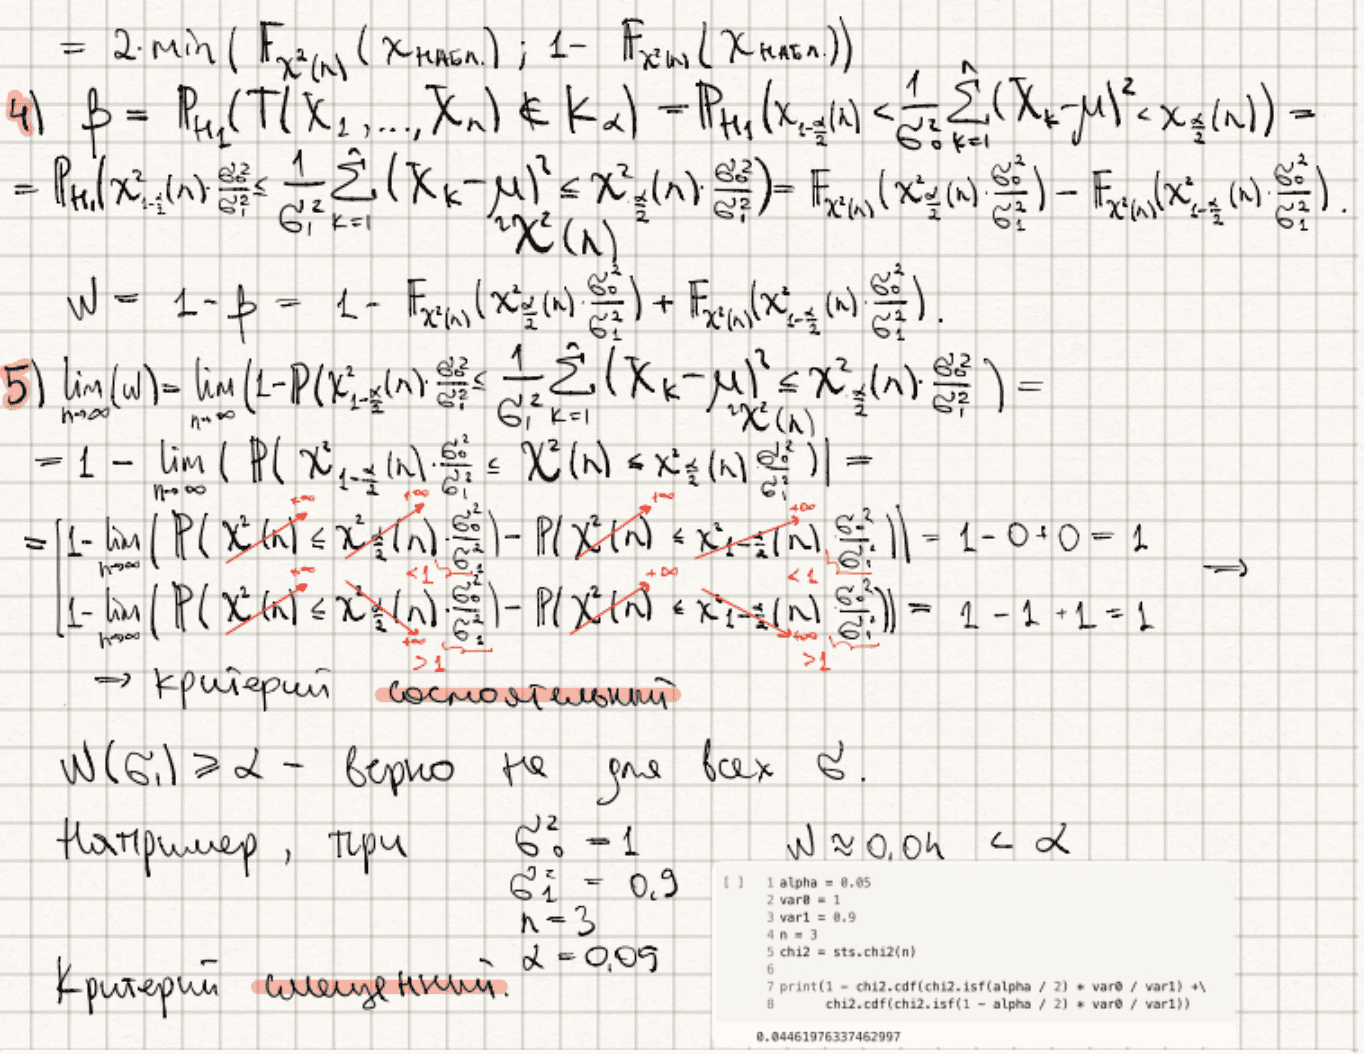 = 2·min(F_{χ²(n)}(χ_{набл.}); 1- F_{χ²(n)}(χ_{набл.}))
4) β = P_{H₁}(T(X₁,...,Xₙ) ∉ K_α) = P_{H₁}(χ_{1-α/2}(n) < 1/σ₀² ∑_{k=1}^{n}(X_k-μ)² < χ_{α/2}(n)) =
= P_{H₁}(χ²_{1-α/2}(n)·σ₀²/σ₁² ≤ 1/σ₁² ∑_{k=1}^{n}(X_k-μ)² ≤ χ²_{α/2}(n)·σ₀²/σ₁²) = F_{χ²(n)}(χ²_{α/2}(n)·σ₀²/σ₁²) - F_{χ²(n)}(χ²_{1-α/2}(n)·σ₀²/σ₁²).
~χ²(n)
W = 1-β = 1- F_{χ²(n)}(χ²_{α/2}(n)·σ₀²/σ₁²) + F_{χ²(n)}(χ²_{1-α/2}(n)·σ₀²/σ₁²).
5) lim_{n→∞}(W) = lim_{n→∞}(1-P(χ²_{1-α/2}(n)·σ₀²/σ₁² ≤ 1/σ₁² ∑_{k=1}^{n}(X_k-μ)² ≤ χ²_{α/2}(n)·σ₀²/σ₁²) =
~χ²(n)
= 1 - lim_{n→∞}(P(χ²_{1-α/2}(n)·σ₀²/σ₁² ≤ χ²(n) ≤ χ²_{α/2}(n) σ₀²/σ₁²)) =
+∞ +∞ +∞ +∞
= [1-lim_{n→∞}(P(χ²(n) ≤ χ²_{α/2}(n)·σ₀²/σ₁²) - P(χ²(n) ≤ χ²_{1-α/2}(n) σ₀²/σ₁²)) = 1-0+0 = 1 ⟹
+∞ <1 +∞ <1
[1-lim_{n→∞}(P(χ²(n) ≤ χ²_{α/2}(n)·σ₀²/σ₁²) - P(χ²(n) ≤ χ²_{1-α/2}(n) σ₀²/σ₁²)) = 1-1+1 = 1
+∞ >1 +∞ >1
⟹ критерий состоятельный
W(σ₁) ⩾ α - верно не для всех σ.
Например, при σ₀² = 1 W ≈ 0,04 < α
σ₁² = 0,9
n = 3
α = 0,05
Критерий смещенный.
[ ] 1 alpha = 0.05
2 var0 = 1
3 var1 = 0.9
4 n = 3
5 chi2 = sts.chi2(n)
6
7 print(1 - chi2.cdf(chi2.isf(alpha / 2) * var0 / var1) +\
8 chi2.cdf(chi2.isf(1 - alpha / 2) * var0 / var1))
0.04461976337462997